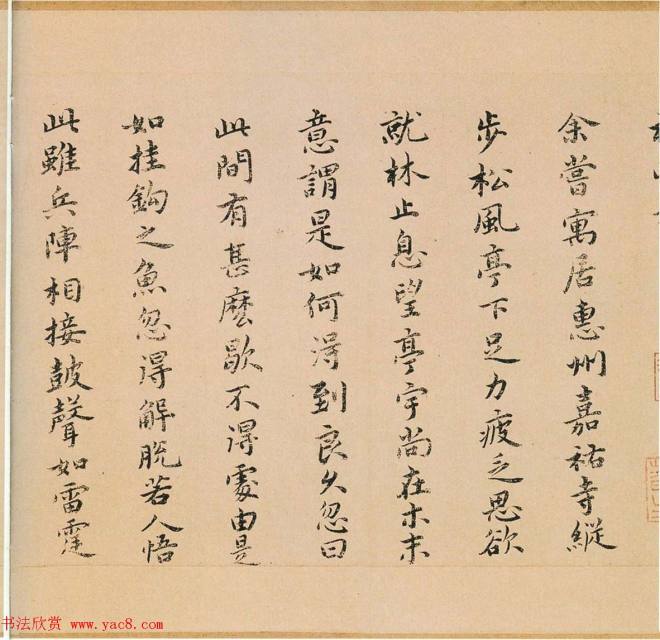 余嘗寓居惠州嘉祐寺縱
步松風亭下足力疲乏思欲
就林止息望亭宇尚在木末
意謂是如何得到良久忽曰
此間有甚麼歇不得處由是
如挂鉤之魚忽得解脫若人悟
此雖兵陣相接鼓聲如雷霆
书法欣赏 www.yac8.com